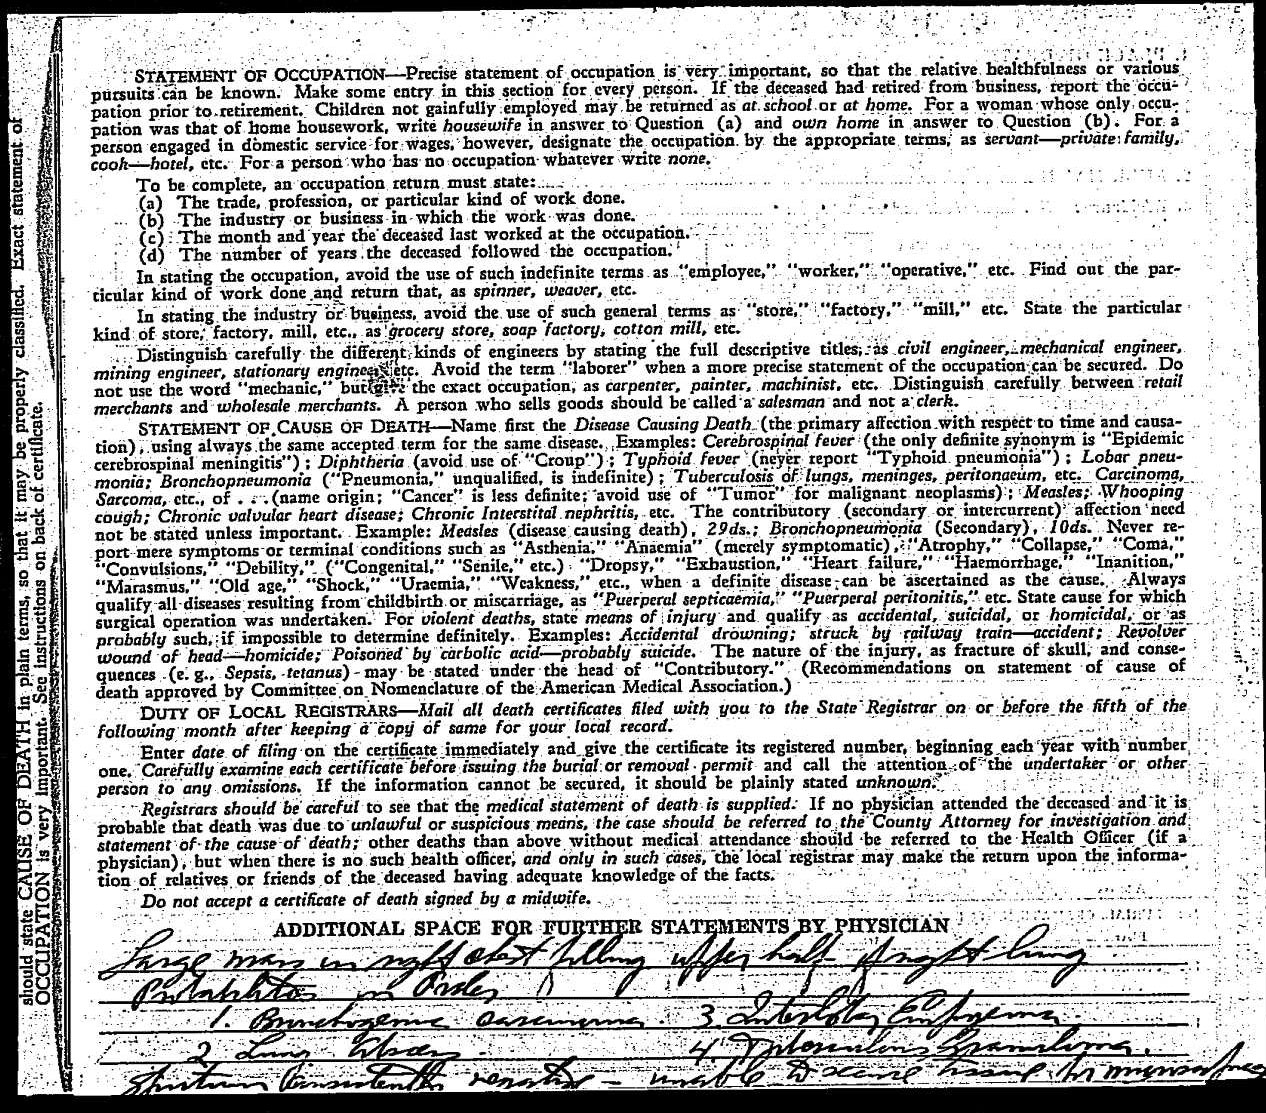 STATEMENT OF OCCUPATION—Precise statement of occupation is very important, so that the relative healthfulness or various
pursuits can be known. Make some entry in this section for every person. If the deceased had retired from business, report the occu-
pation prior to retirement. Children not gainfully employed may be returned as at school or at home. For a woman whose only occu-
pation was that of home housework, write housewife in answer to Question (a) and own home in answer to Question (b). For a
person engaged in domestic service for wages, however, designate the occupation by the appropriate terms, as servant—private family,
cook—hotel, etc. For a person who has no occupation whatever write none.
To be complete, an occupation return must state:
(a) The trade, profession, or particular kind of work done.
(b) The industry or business in which the work was done.
(c) The month and year the deceased last worked at the occupation.
(d) The number of years the deceased followed the occupation.
In stating the occupation, avoid the use of such indefinite terms as "employee," "worker," "operative," etc. Find out the par-
ticular kind of work done and return that, as spinner, weaver, etc.
In stating the industry or business, avoid the use of such general terms as "store," "factory," "mill," etc. State the particular
kind of store, factory, mill, etc., as grocery store, soap factory, cotton mill, etc.
Distinguish carefully the different kinds of engineers by stating the full descriptive titles, as civil engineer, mechanical engineer,
mining engineer, stationary engineer, etc. Avoid the term "laborer" when a more precise statement of the occupation can be secured. Do
not use the word "mechanic," but give the exact occupation, as carpenter, painter, machinist, etc. Distinguish carefully between retail
merchants and wholesale merchants. A person who sells goods should be called a salesman and not a clerk.
STATEMENT OF CAUSE OF DEATH—Name first the Disease Causing Death (the primary affection with respect to time and causa-
tion), using always the same accepted term for the same disease. Examples: Cerebrospinal fever (the only definite synonym is "Epidemic
cerebrospinal meningitis"); Diphtheria (avoid use of "Croup"); Typhoid fever (never report "Typhoid pneumonia"); Lobar pneu-
monia; Bronchopneumonia ("Pneumonia," unqualified, is indefinite); Tuberculosis of lungs, meninges, peritonaeum, etc. Carcinoma,
Sarcoma, etc., of . . . (name origin; "Cancer" is less definite; avoid use of "Tumor" for malignant neoplasms); Measles; Whooping
cough; Chronic valvular heart disease; Chronic Interstital nephritis, etc. The contributory (secondary or intercurrent) affection need
not be stated unless important. Example: Measles (disease causing death), 29ds.; Bronchopneumonia (Secondary), 10ds. Never re-
port mere symptoms or terminal conditions such as "Asthenia," "Anaemia" (merely symptomatic), "Atrophy," "Collapse," "Coma,"
"Convulsions," "Debility," ("Congenital," "Senile," etc.) "Dropsy," "Exhaustion," "Heart failure," "Haemorrhage," "Inanition,"
"Marasmus," "Old age," "Shock," "Uraemia," "Weakness," etc., when a definite disease can be ascertained as the cause. Always
qualify all diseases resulting from childbirth or miscarriage, as "Puerperal septicaemia," "Puerperal peritonitis," etc. State cause for which
surgical operation was undertaken. For violent deaths, state means of injury and qualify as accidental, suicidal, or homicidal, or as
probably such, if impossible to determine definitely. Examples: Accidental drowning; struck by railway train—accident; Revolver
wound of head—homicide; Poisoned by carbolic acid—probably suicide. The nature of the injury, as fracture of skull, and conse-
quences (e. g., Sepsis, tetanus) may be stated under the head of "Contributory." (Recommendations on statement of cause of
death approved by Committee on Nomenclature of the American Medical Association.)
DUTY OF LOCAL REGISTRARS—Mail all death certificates filed with you to the State Registrar on or before the fifth of the
following month after keeping a copy of same for your local record.
Enter date of filing on the certificate immediately and give the certificate its registered number, beginning each year with number
one. Carefully examine each certificate before issuing the burial or removal permit and call the attention of the undertaker or other
person to any omissions. If the information cannot be secured, it should be plainly stated unknown.
Registrars should be careful to see that the medical statement of death is supplied. If no physician attended the deceased and it is
probable that death was due to unlawful or suspicious means, the case should be referred to the County Attorney for investigation and
statement of the cause of death; other deaths than above without medical attendance should be referred to the Health Officer (if a
physician), but when there is no such health officer, and only in such cases, the local registrar may make the return upon the informa-
tion of relatives or friends of the deceased having adequate knowledge of the facts.
Do not accept a certificate of death signed by a midwife.
ADDITIONAL SPACE FOR FURTHER STATEMENTS BY PHYSICIAN
Large mass in right chest filling upper half of right lung
Probabilities in order
1. Bronchogenic carcinoma 3. Interlobar Empyema
2. Lung Abscess 4. Tuberculous Granuloma.
Sputum consistently negative - unable to secure tissue for
should state CAUSE OF DEATH in plain terms, so that it may be properly classified. Exact statement of
OCCUPATION is very important. See instructions on back of certificate.